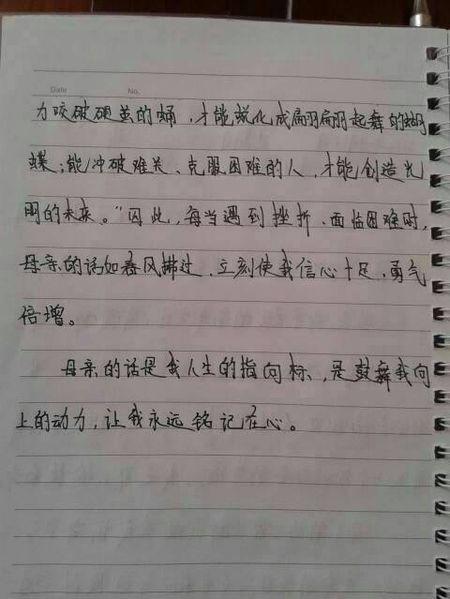 Date No.
力咬破硬茧的蛹，才能蜕化成翩翩起舞的蝴
蝶；能冲破难关、克服困难的人，才能创造光
明的未来。"因此，每当遇到挫折、面临困难时，
母亲的话如春风拂过，立刻使我信心十足，勇气
倍增。
母亲的话是我人生的指向标，是鼓舞我向
上的动力，让我永远铭记在心。